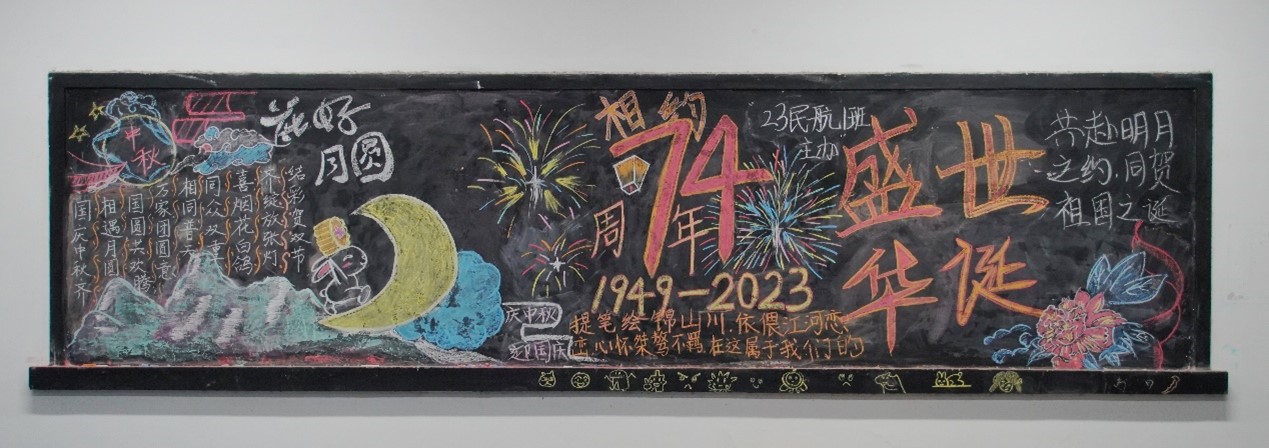 中
秋
花好
月圆
国庆中秋齐
相遇月圆
国圆共欢腾
万家团圆意
相同普天
同众双喜
喜烟花白鸽
齐绽放张灯
结彩贺双节
庆中秋
迎国庆
相约
74
周年
1949-2023
23民航班
主办
盛世
华诞
共赴明月
之约.同贺
祖国之诞
提笔绘锦山川.依偎江河恋
恋心怀桀骜不羁 在这属于我们的